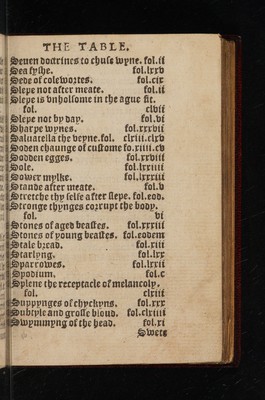 THE TABLE.
Seuen doctrines to chuse wyne. fol.ii
Sea fyshe. fol.lxxv
Sede of colewortes. fol.cix
Slepe not after meate. fol.ii
Slepe is vnholsome in the ague fit.
fol. clvii
Slepe not by day. fol.vi
Sharpe wynes. fol.xxxvii
Saluatella the veyne.fol. clxiii.clxv
Soden chaunge of custome fo.iiii.cv
Sodden egges. fol.xxviii
Sole. fol.lxxiiii
Sower mylke. fol.lxxxiii
Stande after meate. fol.v
Stretche thy selfe after slepe. fol.eod.
Stronge thynges corrupt the body.
fol. vi
Stones of aged beastes. fol.xxxiii
Stones of young beastes. fol.eodem
Stale bread. fol.xiii
Starlyng. fol.lxx
Sparrowes. fol.lxxii
Spodium. fol.c
Splene the receptacle of melancoly.
fol. clxiii
Suppynges of chyckyns. fol.xxx
Subtyle and grosse bloud. fol.clxiiii
Swymmyng of the head. fol.xi
Swete